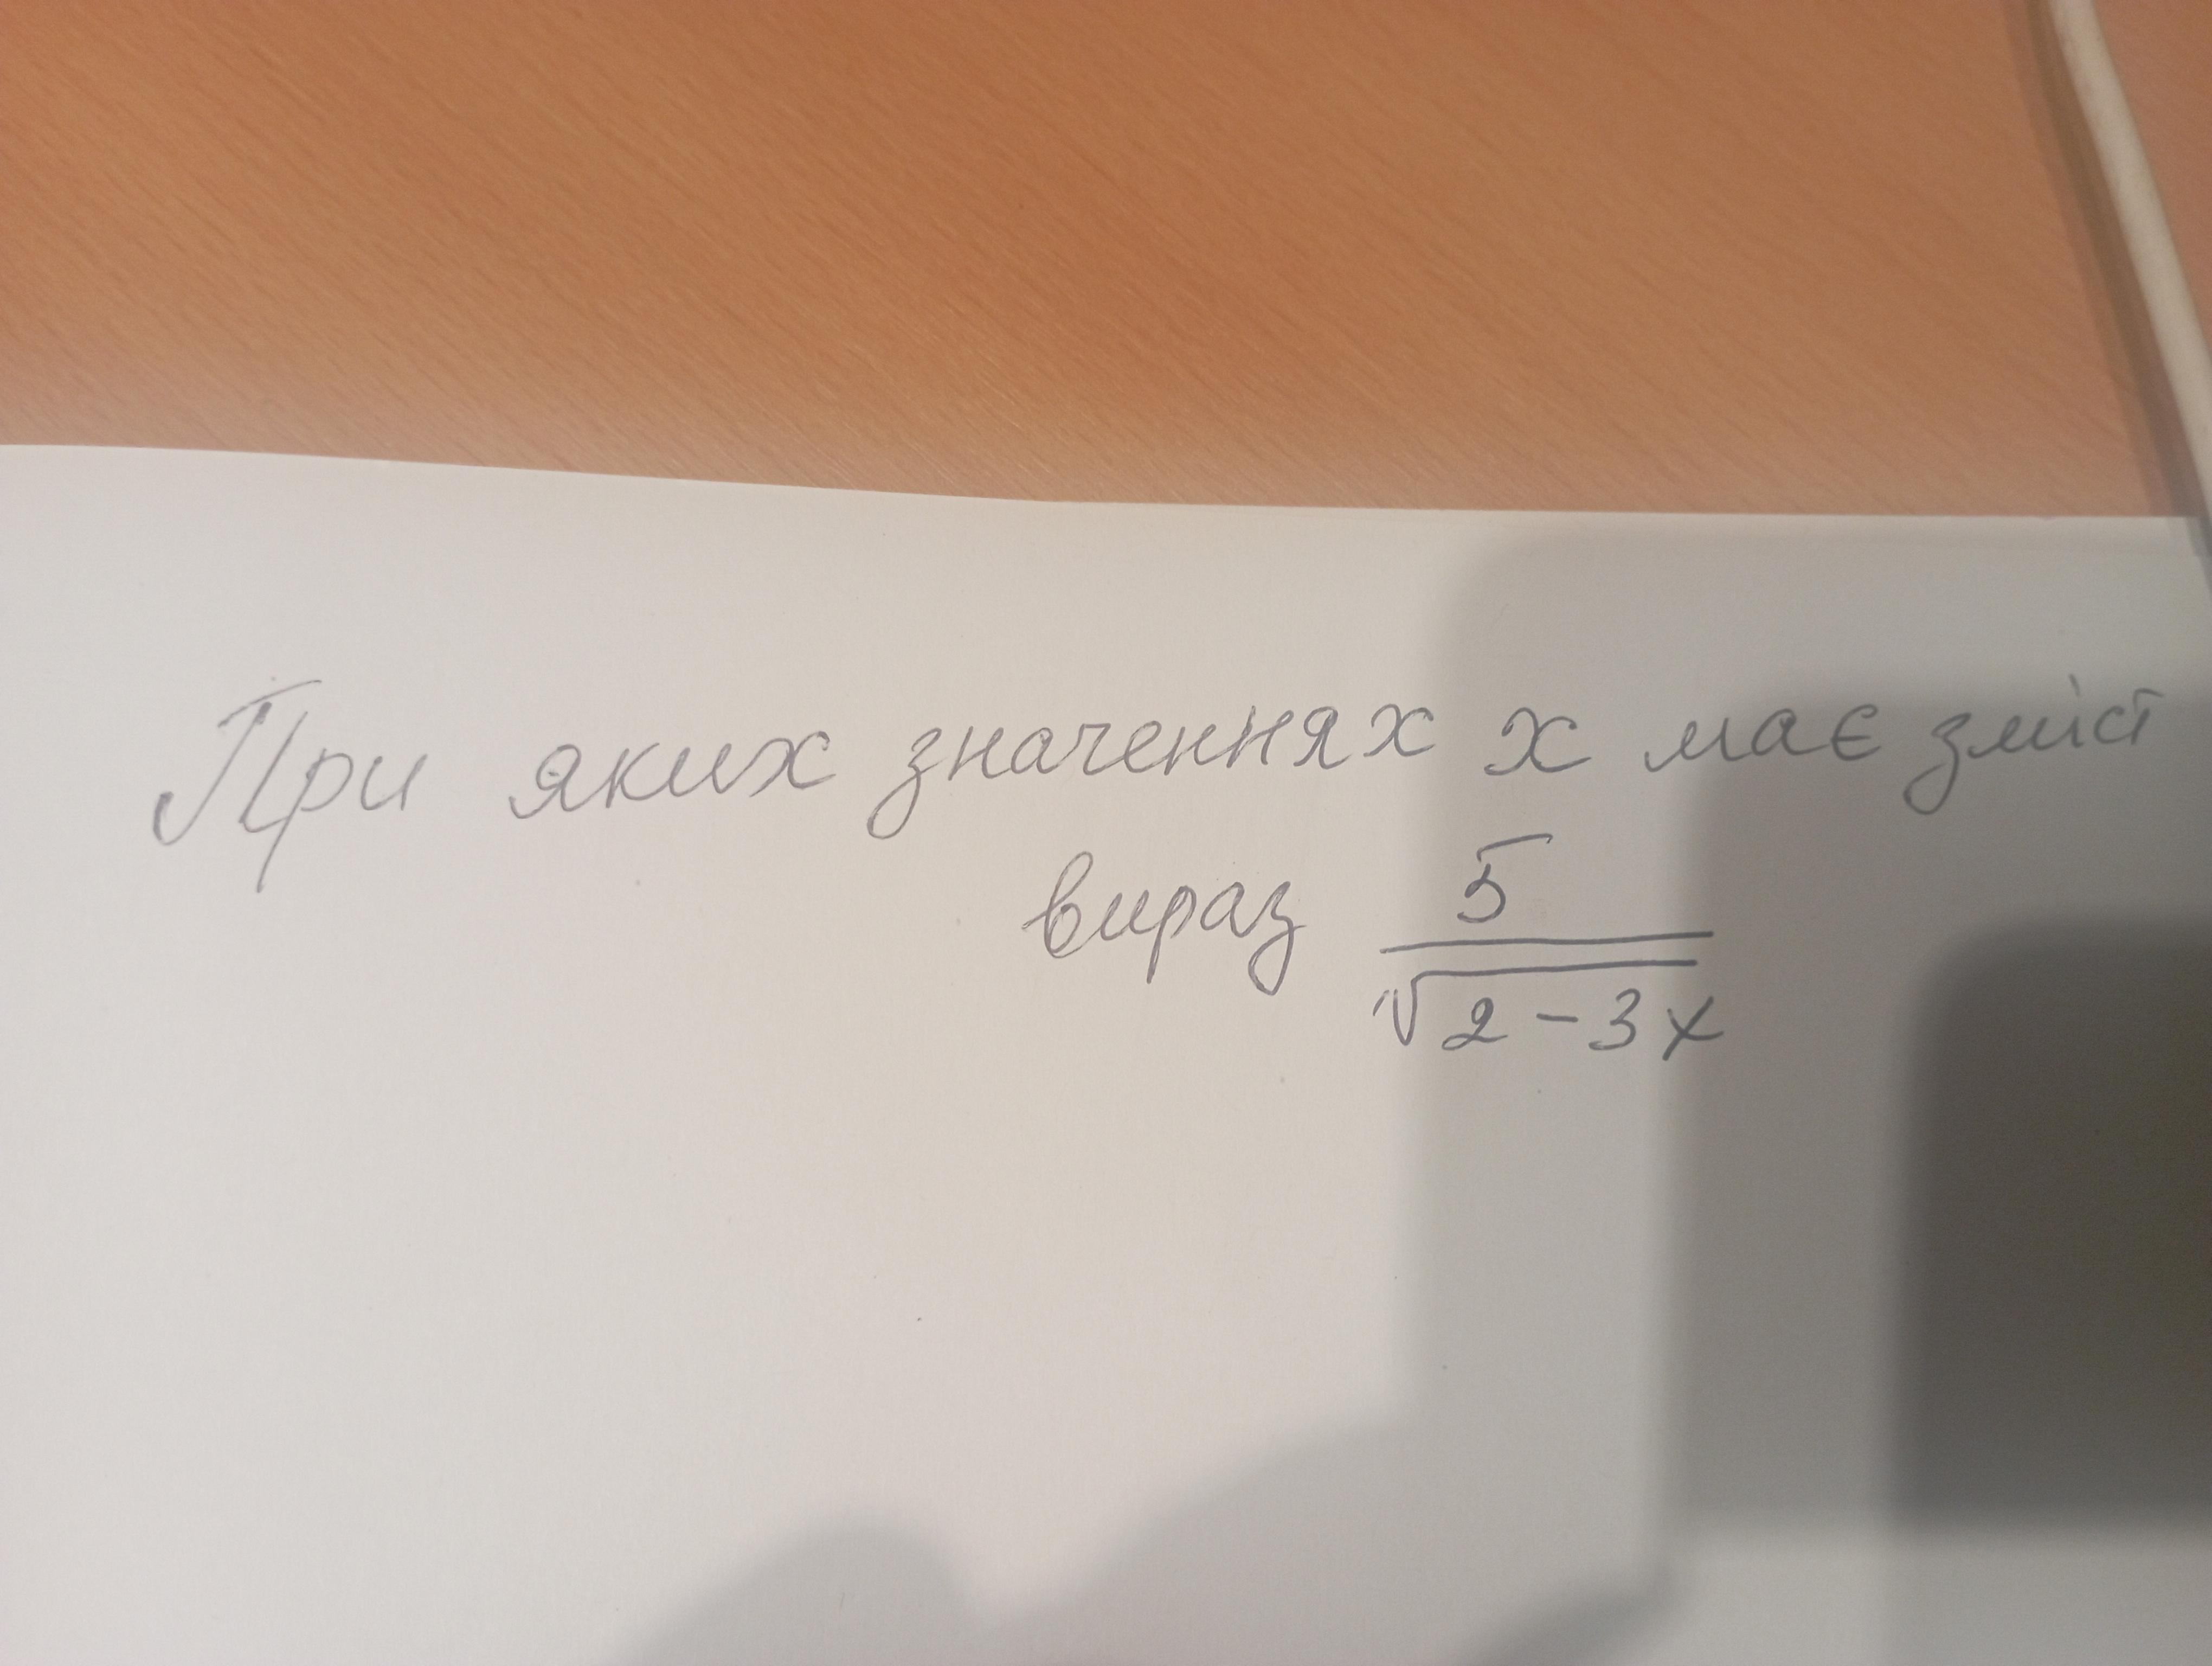 При яких значеннях х має зміст
вираз 5/√(2-3x)